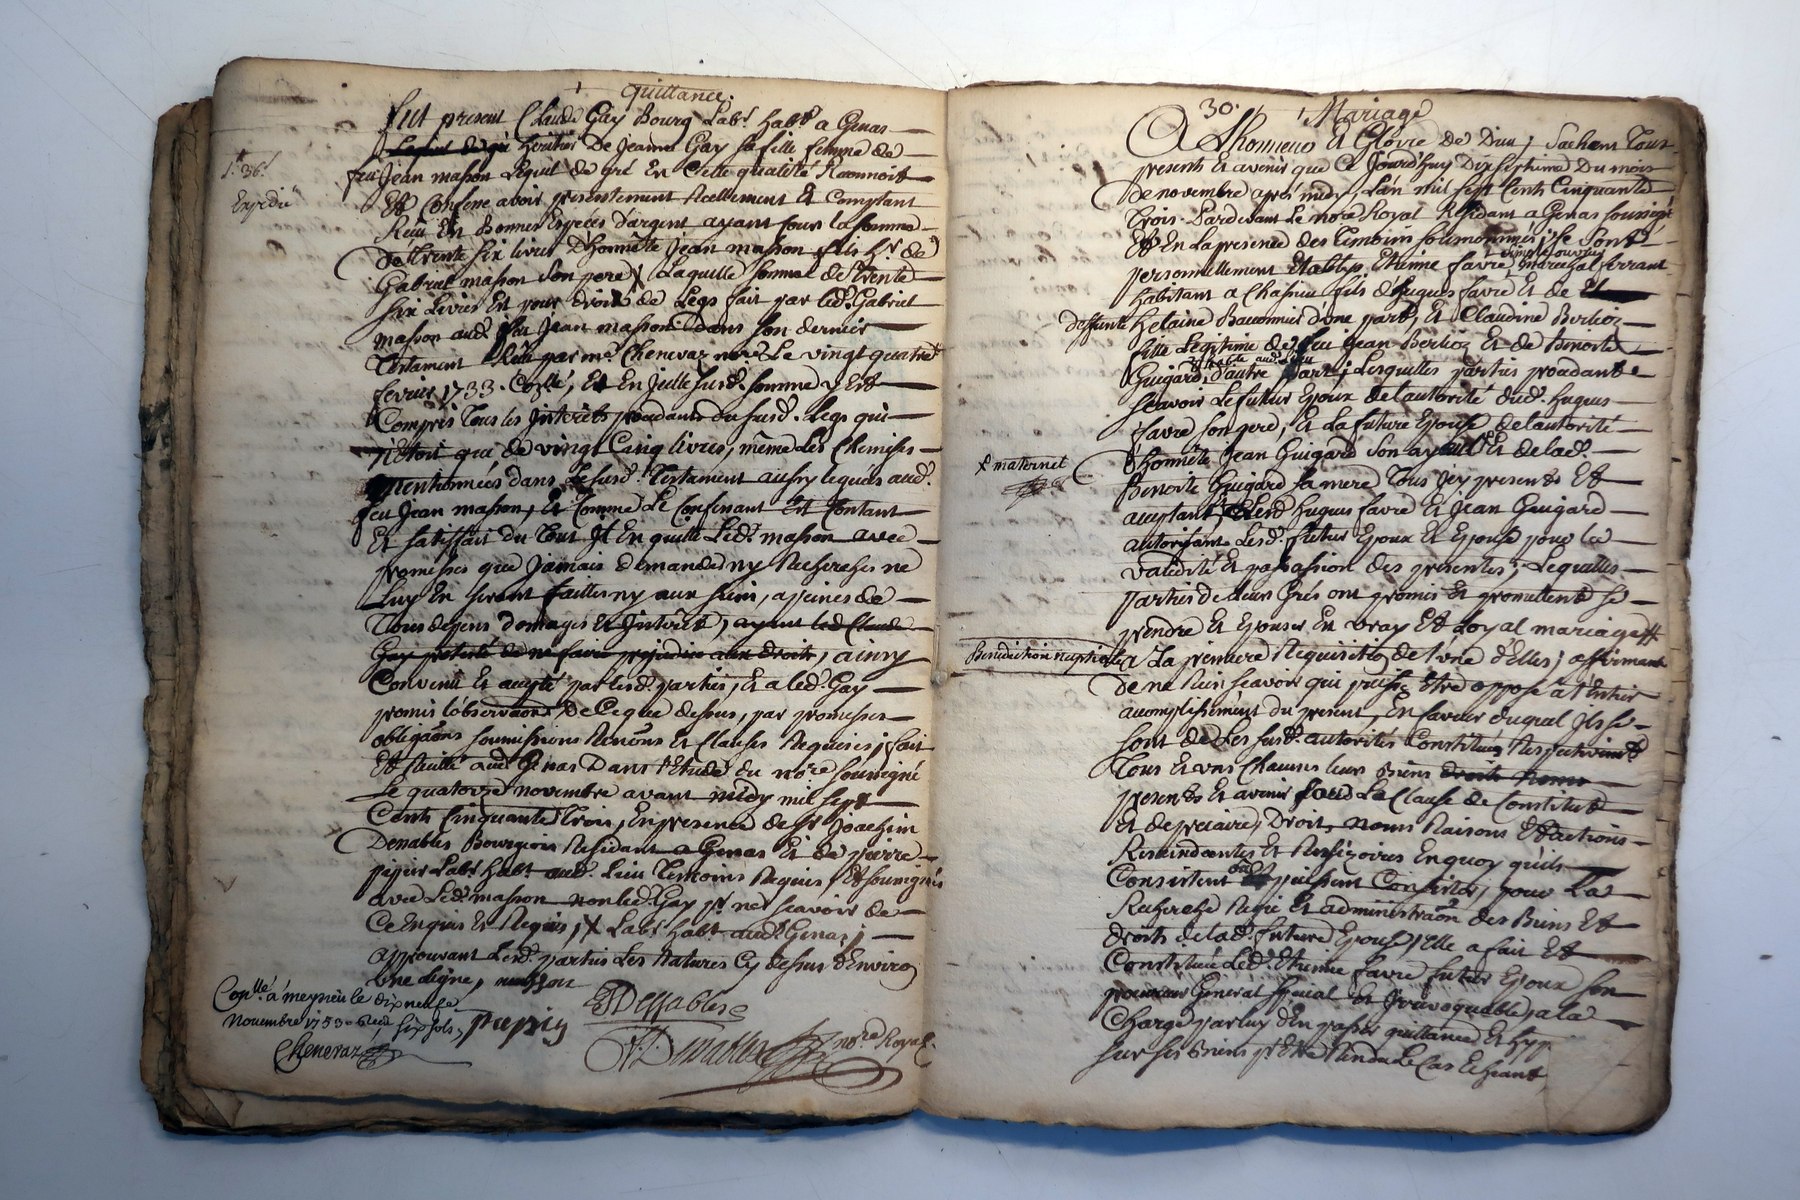 quittance.
fut present Claude Gay Bourg Lab.r hab.t a Genas
heritier De Jeanne Gay sa fille femme de
1.t 36.s
Expedié
feu Jean masson Lequel de gré En Cette qualité Reconnoit
Et Confesse avoir presentement Reellement Et Comptant
Reçu En Bonnes Especes d'argent ayant cours la somme
De Trente six livres D'honnete Jean masson fils h.r de
Gabriel masson son pere X Laquelle somme de Trente
six Livres Est pour droit de Legs fait par led. Gabriel
masson aud. feu Jean masson dans son dernier
Testament Reçu par m.e Chenevaz no.re Le vingt quatre
fevrier 1733. Et En Jcelle susd. somme y Est
Compris Tous les Interets du susd. Legs qui
n'Etoit que de vingt Cinq livres, même Les Chemises
mentionnées dans Le susd. Testament aussy leguées aud.
feu Jean masson, Et Comme Le Confessant Est Contant
Et satisfait du Tout Jl En quitte Led. masson avec
promesses que Jamais demande ny Recherche ne
Luy En seront faittes ny aux siens, a peines de
Tous depens domages Et Interets, ayant led. Claude
Gay protesté de ne faire prejudice aux droits, ainsy
Convenu Et accepté par lesd. parties, Et a led. Gay
promis lobservaon De Ce que dessus, par promesses
obligaons soumissions Renons Et Clauses Requises; fait
Et stipulé aud. Genas Dans l'Etude du no.re soussigné
Le quatorze novembre avant midy mil sept
Cents Cinquante Trois, En presence de S.r Joachim
Denables Bourgeois Residant a Genas Et de pierre
pepin Lab.r hab.t aud. Lieu Temoins Requis Et soussignés
avec Led. masson non led. Gay p.r ne scavoir de
Ce Enquis Et Requis, X Lab.r hab.t aud. Genas;
approuvant Lesd. parties Les Ratures Cy dessus d'Environ
Une ligne,
Con.llé a meyzieu le dix neufe
Novembre 1753. Recu six sols,
Chenevaz
pepin
no.re Royal
30.
Mariage
A Lhonneur Et Gloire de Dieu, Sachent Tous
presents Et avenir que Ce Jourd'huy Dix septieme Du mois
de novembre après midy, L'an mil sept Cents Cinquante
Trois. Pardevant Le no.re Royal Residant a Genas soussigné
Et En La presence des Temoins sousnommés; se sont
personnellement Etablys Etienne favre, marechal ferrant
habitant a Chassieu fils d'hugues favre Et de
deffunte Helaine Baconnier d'une part, Et Claudine Berlioz
fille Legitime de feu Jean Berlioz Et de Benoite
Guigard, d'autre part, Lesquelles parties procedant
scavoir Le futur Epoux de l'autorité dud. hugues
favre son pere, Et La future Epouse de l'autorité
D'honnete Jean Guigard son ayeul X Et de lad.
X maternel
Benoite Guigard sa mere Tous Jcy presents Et
acceptant, hugues favre Et Jean Guigard
autorisant Lesd. futur Epoux Et Epouse pour la
validité Et passation des presentes; Lequelles
parties de leurs Grés ont promis Et promettent se
prendre Et Epouser En vray Et Loyal mariage #
Benediction nuptiale
a La premiere Requisition de l'une d'Elles; affirmant
de ne Rien scavoir qui puisse Etre opposé a l'Entier
accomplissement du present, En faveur duquel Jls se
sont de Les susd. autorités Constitués Respectivement
Tous Et uns Chacuns leurs Biens droits noms
presents Et avenir sous La Clause de Constitut
Et de precaire, Droits, noms Raisons Et actions
Rescindantes Et Rescizoires En quoy qu'ils
Consistent ou puissent Consister, pour La
Recherche Regie Et administraon des Biens Et
droits de lad. future Epouse, Elle a fait Et
Constitué Led. Etienne favre futur Epoux son
procureur General special Et Jrrevoquable, a la
Charge par luy d'En passer quittance Et hyp
sur ses Biens p.r Etre Rendu Le Cas Echeant